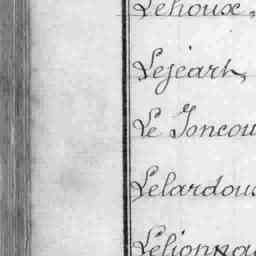 Lehoux,
Lejeart,
Le Joncou
Lelardoux
Lélionnai